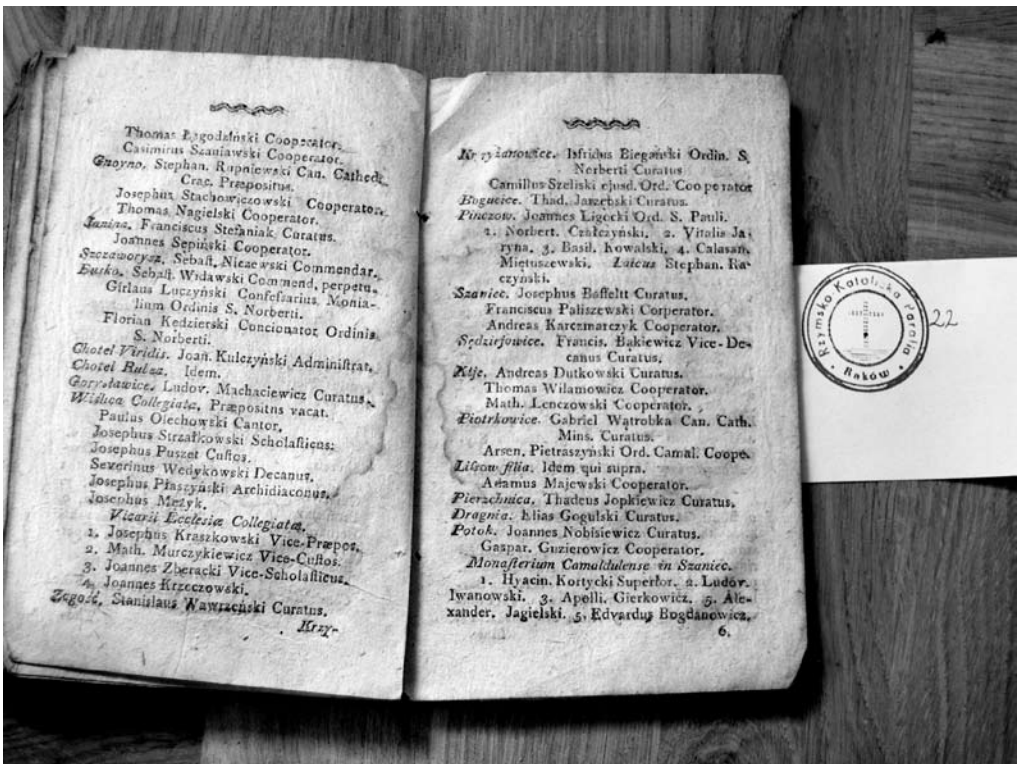 Thomas Cooperator.
Casimirus Szaniawski Cooperator.
Gnoyno. Stephan. Rupniewski Can. Cathedr.
Crac. Præpositus.
Josephus Stachowiczowski Cooperator.
Thomas Nagielski Cooperator.
Janina. Franciscus Stefaniak Curatus.
Joannes Sępiński Cooperator.
Szczaworysz. Sebaſt. Nizewski Commendar.
Busko. Sebaſt. Widawski Commend. perpetu.
Girlaus Luczyński Confeſsarius Monia-
lium Ordinis S. Norberti.
Florian Kedzierski Concionator Ordinis
S. Norberti.
Chotel Viridis. Joan. Kulczyński Adminiſtrat.
Chotel Idem.
Gorysławice. Ludov. Machaciewicz Curatus.
Wiślica Collegiata. Præpositus vacat.
Paulus Olechowski Cantor.
Josephus Strzałkowski Scholaſticus.
Josephus Puszet Cuſtos.
Severinus Wedykowski Decanus.
Josephus Płaszyński Archidiaconus.
Josephus Mrżyk.
Vicarii Ecclesiæ Collegiatæ.
1. Josephus Kraszkowski Vice-Præpos.
2. Math. Murczykiewicz Vice-Cuſtos.
3. Joannes Zberacki Vice-Scholaſticus.
4. Joannes Krzeczowski.
Zagość. Stanislaus Curatus.
Krzy-
Krzyżanowice. Isfridus Biegański Ordin. S.
Norberti Curatus
Camillus Szeliski ejusd. Ord. Cooperator
Bogucice. Thad. Jarzębski Curatus.
Pinczow. Joannes Ligocki Ord. S. Pauli.
1. Norbert. 2. Vitalis Ja-
ryna. 3. Basil. Kowalski. 4. Calasan.
Miętuszewski. Laicus Stephan. Ra-
czyński.
Szaniec. Josephus Baffeltt Curatus.
Franciscus Paliszewski Corperator.
Andreas Karczmarczyk Cooperator.
Sędzieſowice. Francis. Bąkiewicz Vice-De-
canus Curatus.
Kije. Andreas Dutkowski Curatus.
Thomas Wilamowicz Cooperator.
Math. Lenczowski Cooperator.
Piotrkowice. Gabriel Wątrobka Can. Cath.
Mins. Curatus.
Arsen. Pietraszyński Ord. Camal. Coope.
Lisow filia. Idem qui supra.
Adamus Majewski Cooperator.
Pierzchnica. Thadeus Jopkiewicz Curatus.
Dragnia. Elias Gogulski Curatus.
Potok. Joannes Nobisiewicz Curatus.
Gaspar. Guzierowicz Cooperator.
Monaſterium Camaldulense in Szaniec.
1. Hyacin. Kortycki Superior. 2. Ludov.
Iwanowski. 3. Apolli. Gierkowicz. 5. Ale-
xander. Jagielski. 5. Edvardus Bogdanowicz.
6.
Rzymsko-Katolicka Parafia
Raków
22